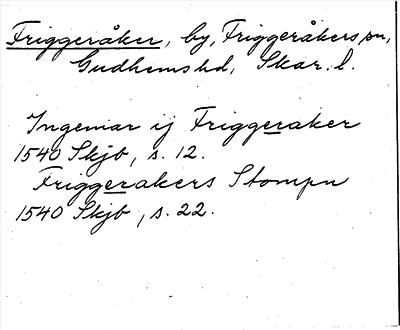 Friggeråker, by, Friggeråkers sn,
Gudhems hd, Skar. l.
Ingemar ij Friggeraker
1540 Skjb, s. 12.
Friggerakers Stompn
1540 Skjb, s. 22.